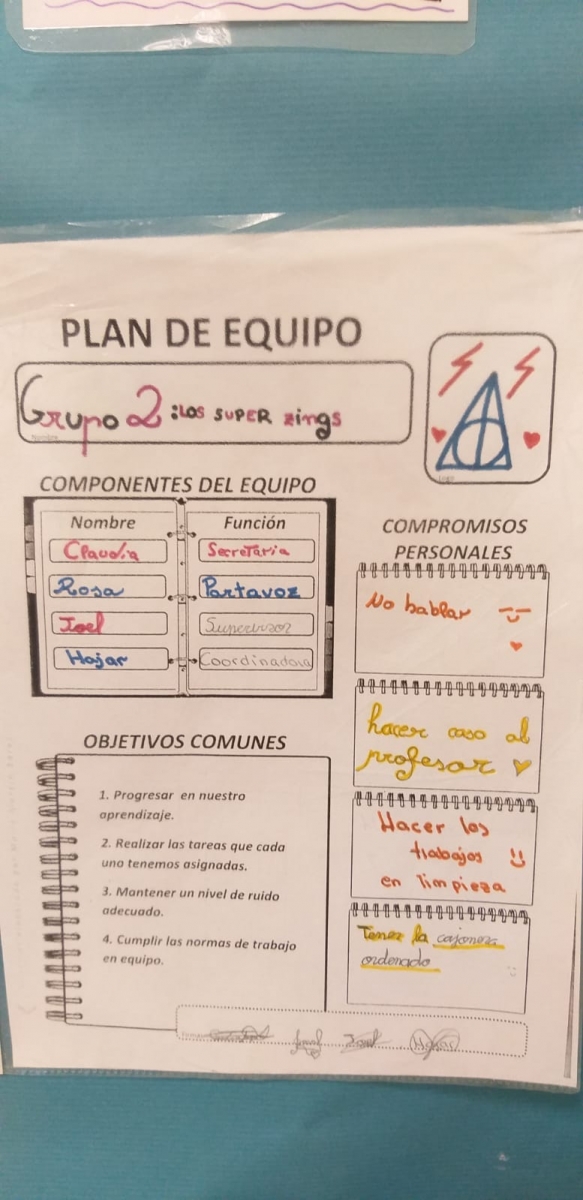 PLAN DE EQUIPO
Grupo 2: LOS SUPER zings
Nombre
Logo
COMPONENTES DEL EQUIPO
Nombre Función
Claudia Secretaria
Rosa Portavoz
Joel Supervisor
Hajar Coordinadora
OBJETIVOS COMUNES
1. Progresar en nuestro
aprendizaje.
2. Realizar las tareas que cada
uno tenemos asignadas.
3. Mantener un nivel de ruido
adecuado.
4. Cumplir las normas de trabajo
en equipo.
COMPROMISOS
PERSONALES
No hablar
hacer caso al
profesor
Hacer los
trabajos
en limpieza
Tener la cajonera
ordenado